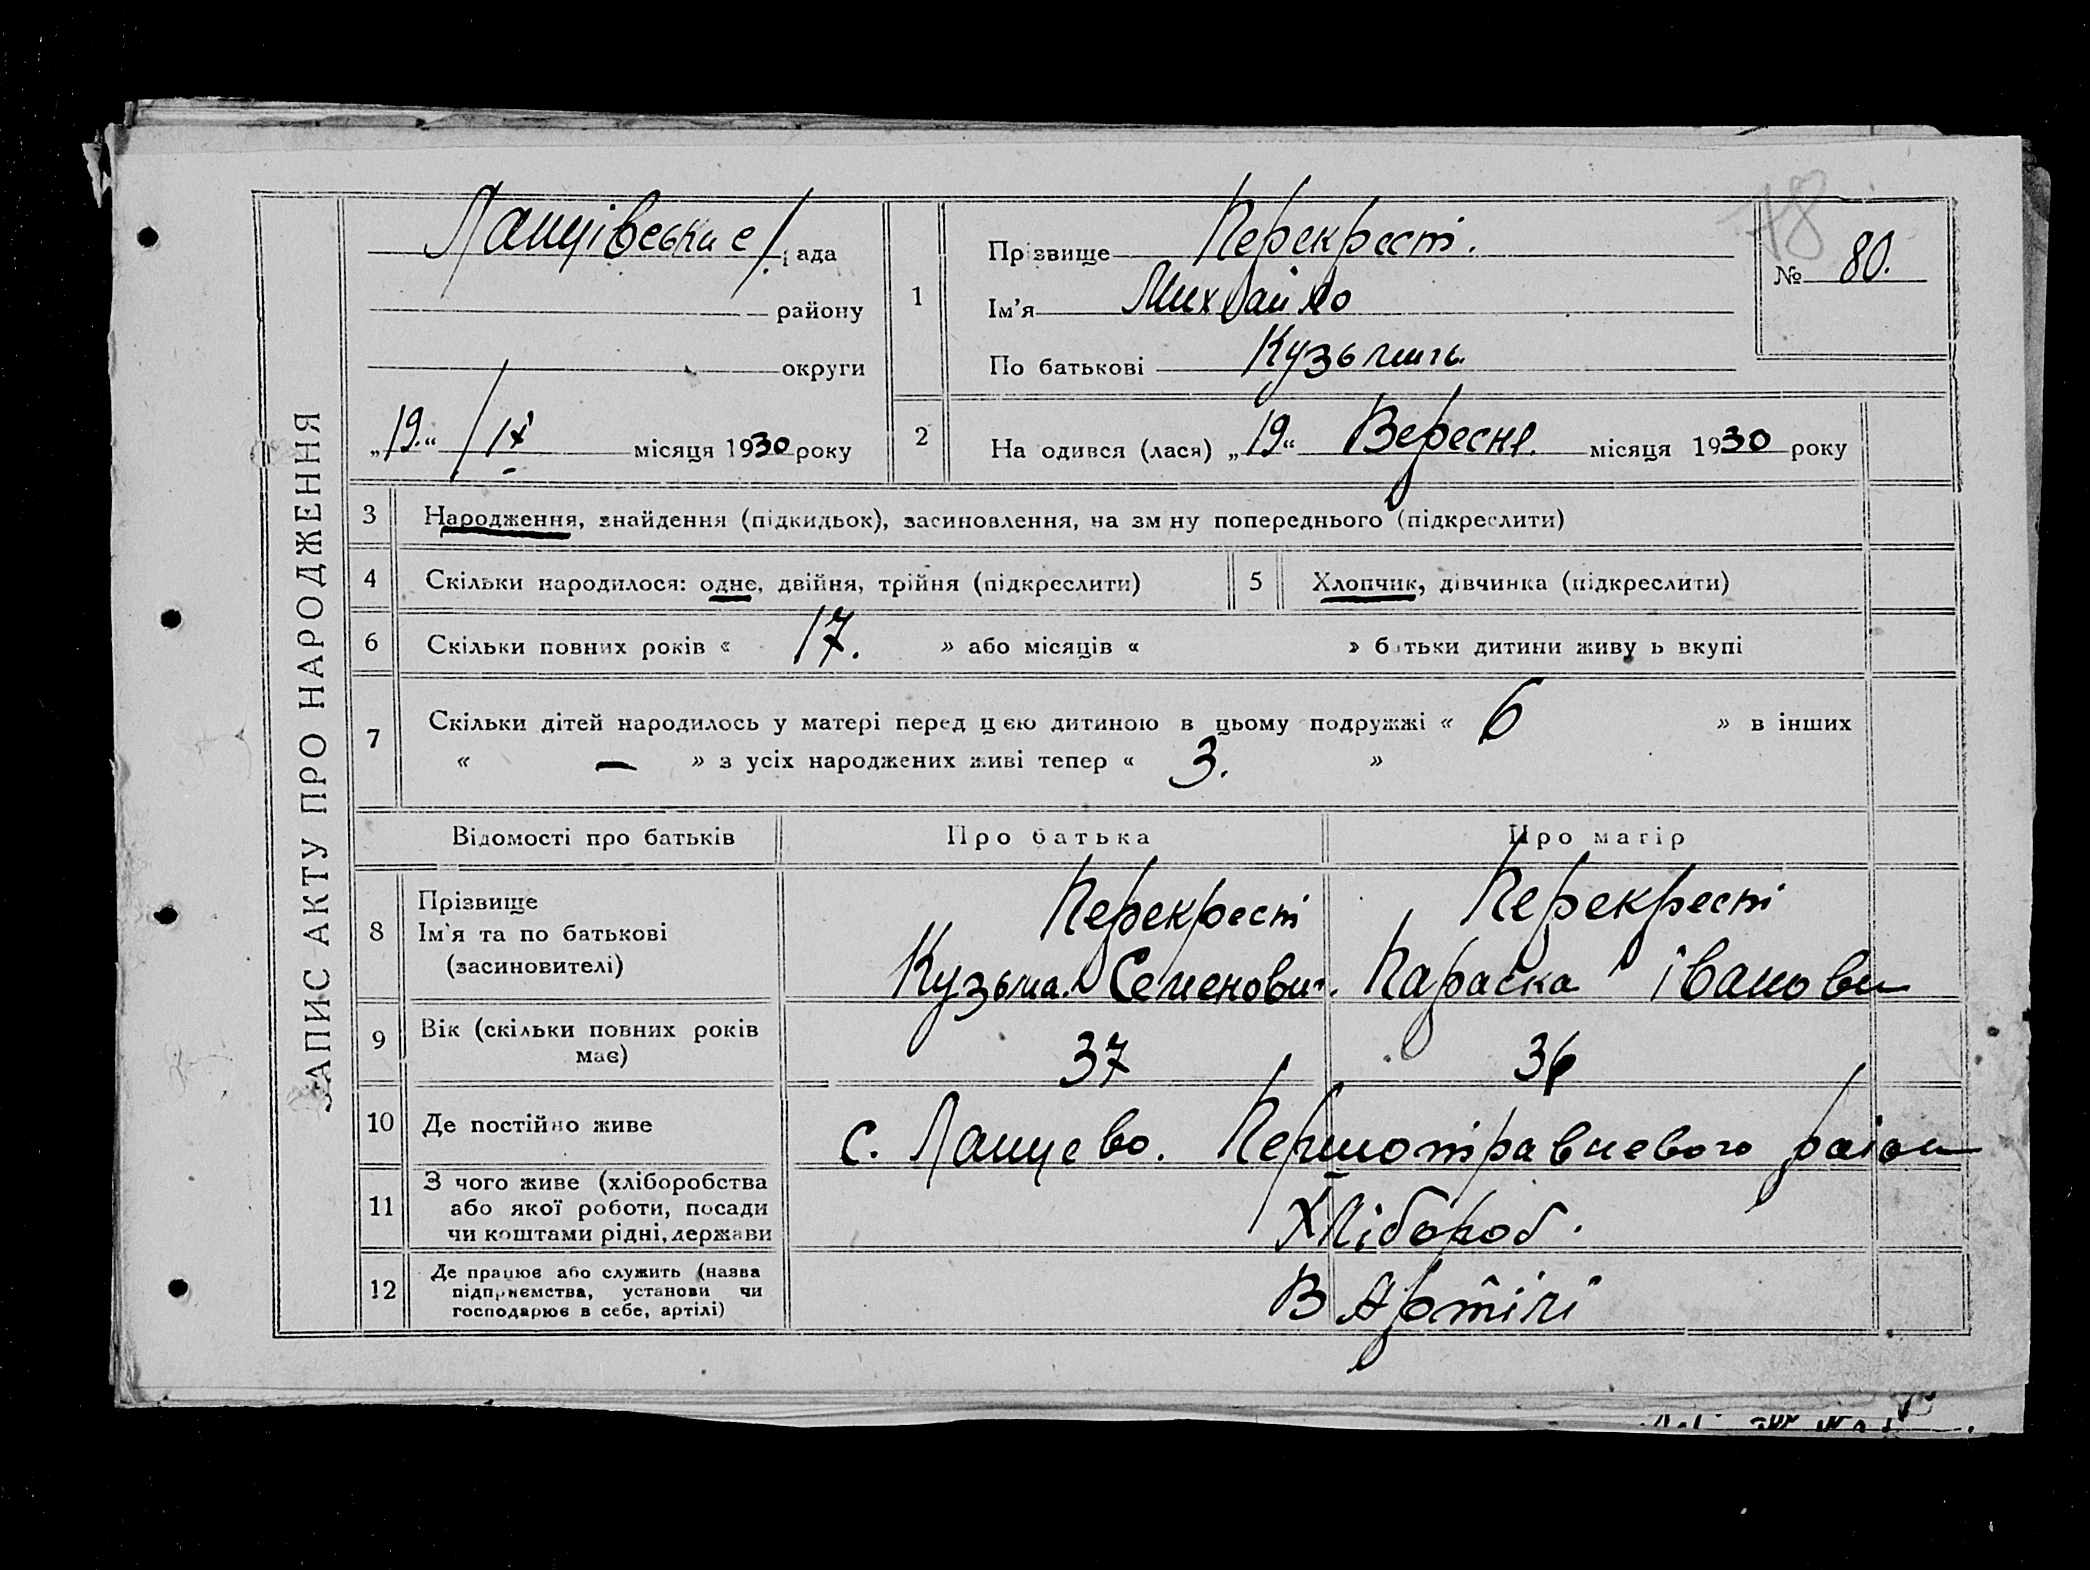 ЗАПИС АКТУ ПРО НАРОДЖЕННЯ
Лащівська с/рада
району
округи
„19.“ /IX місяця 1930 року
78
№ 80.
1
Прізвище Перекрест.
Ім'я Михайло
По батькові Кузьмич.
2
На одився (лася) „19“ Вересня. місяця 1930 року
3 Народження, знайдення (підкидьок), засиновлення, на зм ну попереднього (підкреслити)
4 Скільки народилося: одне, двійня, трійня (підкреслити) 5 Хлопчик, дівчинка (підкреслити)
6 Скільки повних років « 17. » або місяців « » батьки дитини живу ь вкупі
7 Скільки дітей народилось у матері перед цією дитиною в цьому подружжі « 6 » в інших
« — » з усіх народжених живі тепер « 3. »
Відомості про батьків Про батька Про матір
8 Прізвище
Ім'я та по батькові
(засиновителі)
Перекрест
Кузьма. Семенович.
Перекрест
Параска Іванови
9 Вік (скільки повних років
має)
37 36
10 Де постійно живе с. Лащево. Першотравневого район
11 З чого живе (хліборобства
або якої роботи, посади
чи коштами рідні, держави
Хлібороб.
12 Де працює або служить (назва
підприємства, установи чи
господарює в себе, артілі)
В Артілі